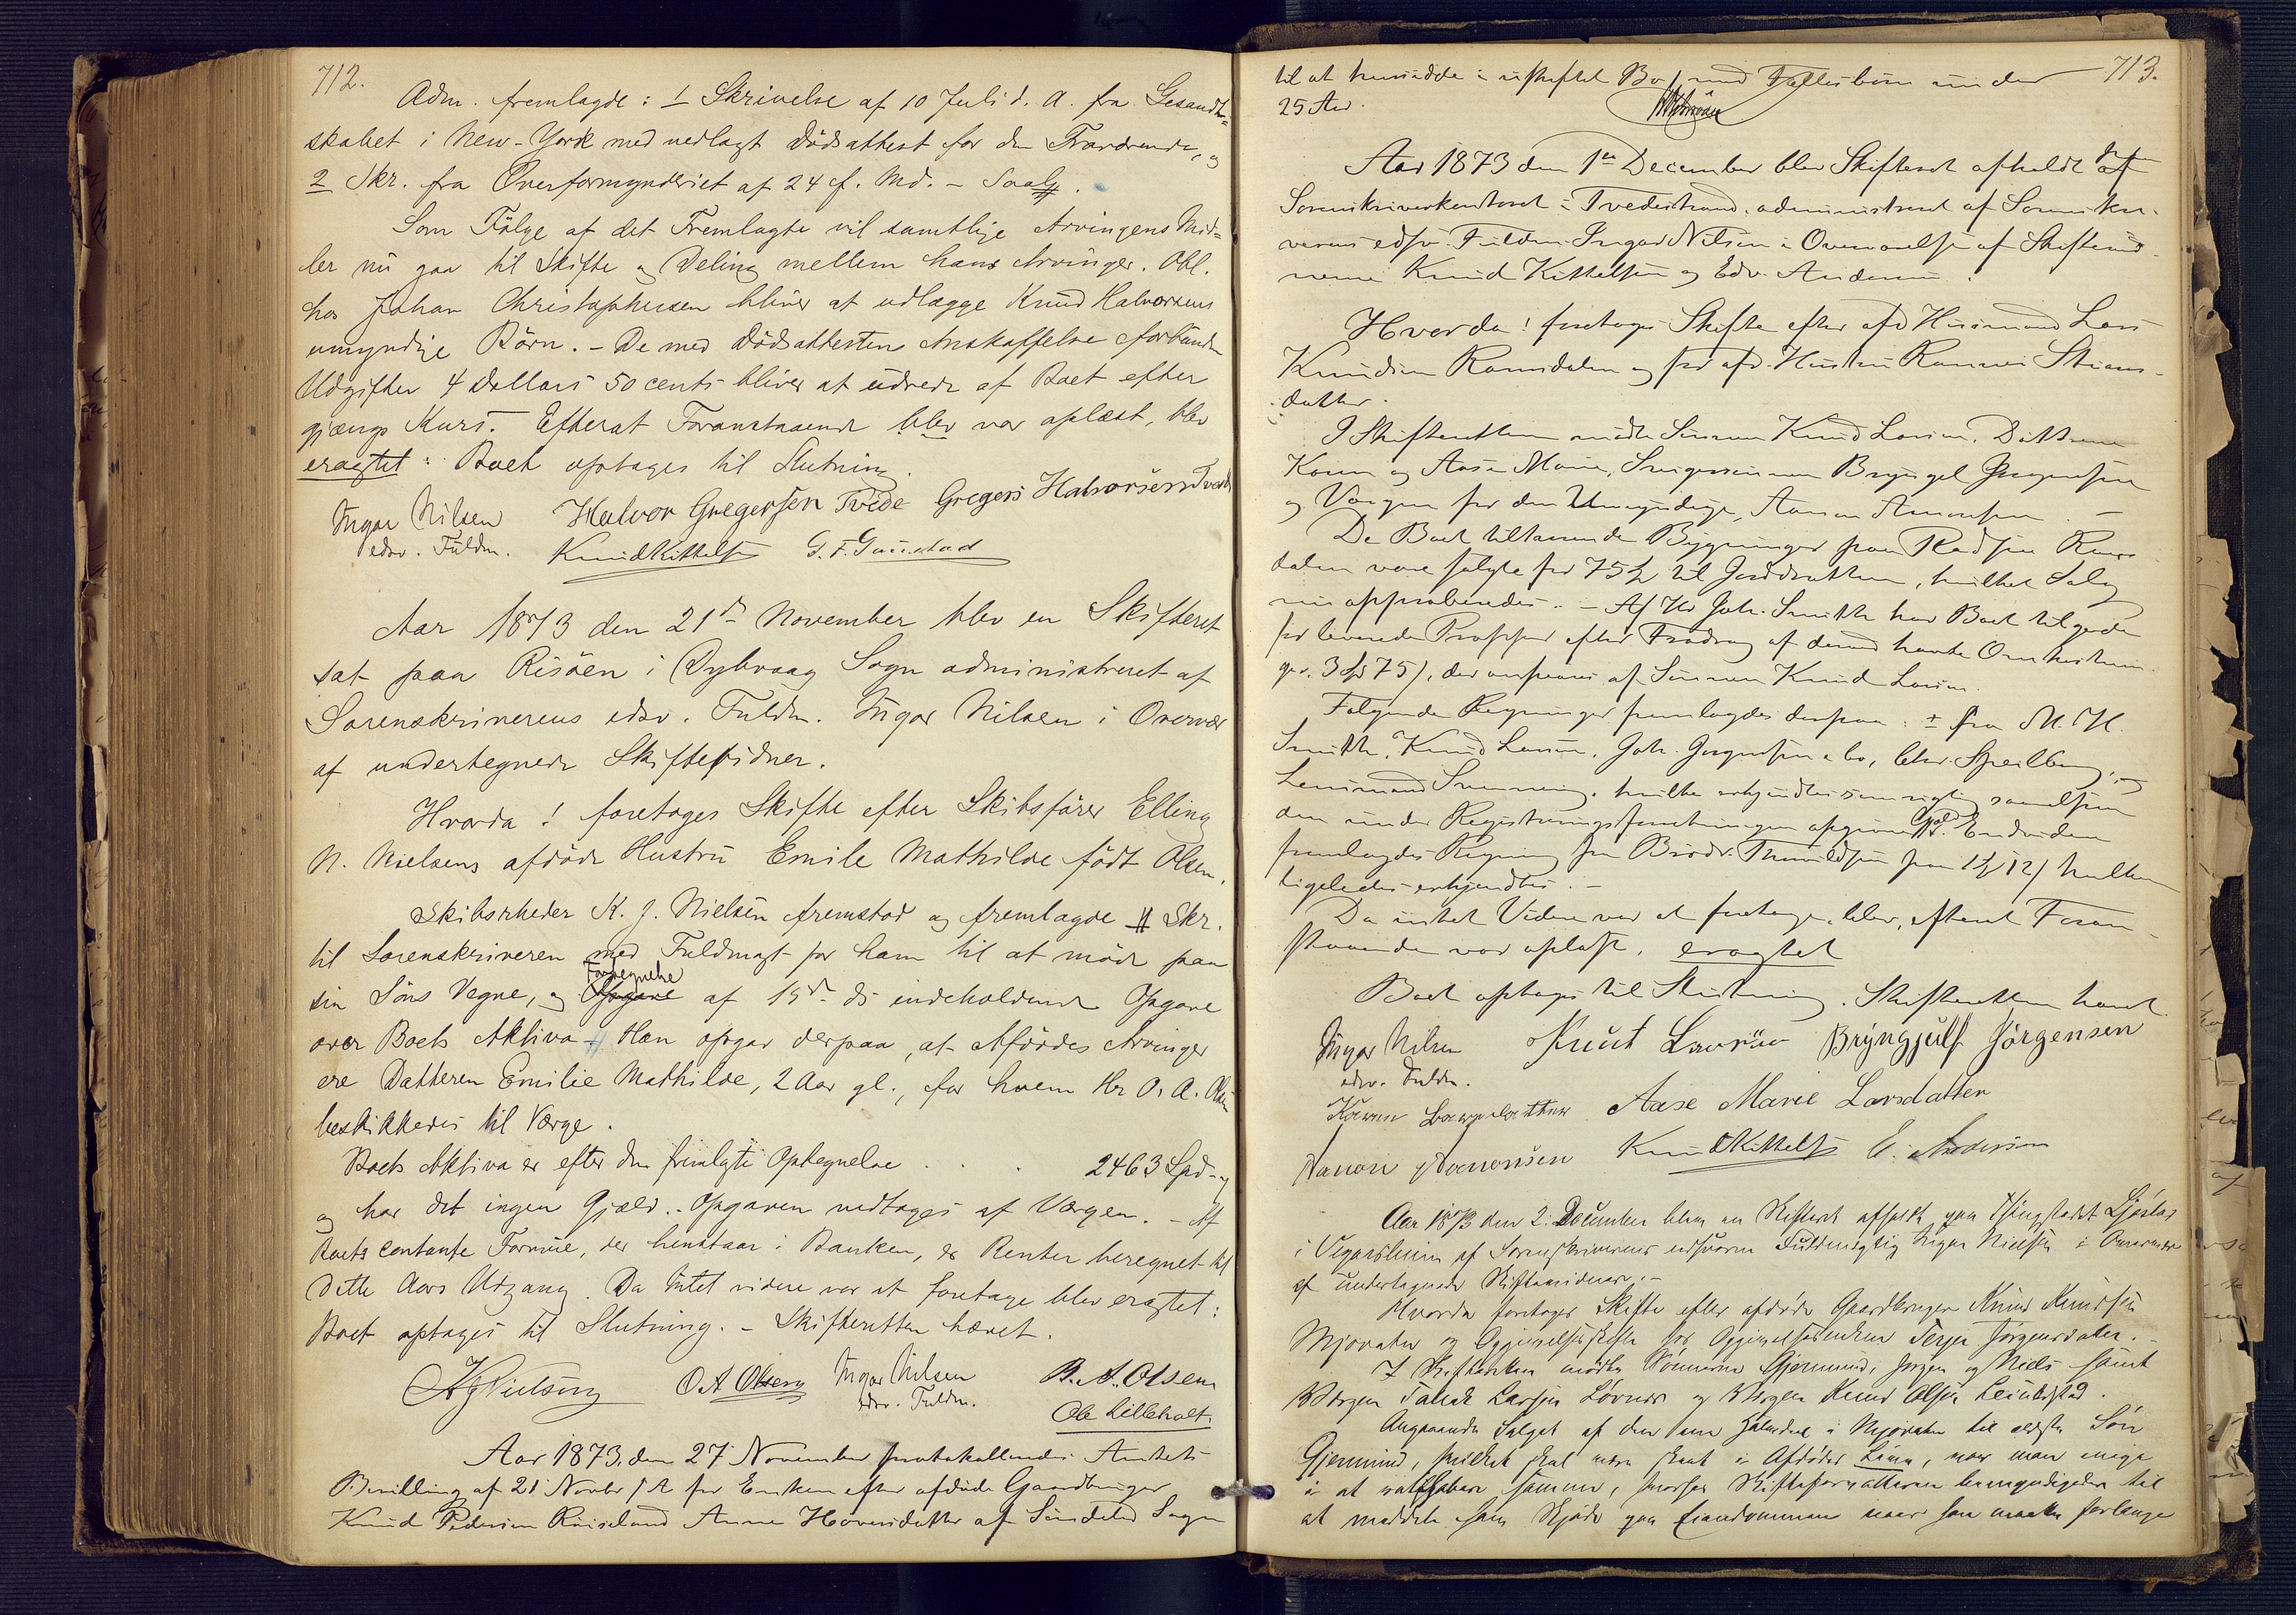 712.
Adm. fremlagde: 1 Skrivelse af 10 Juli d. A. fra Gesandt=
skabet i New-York med vedlagt Dödsattest for den Fraværende, og
2 Skr. fra Overformynderiet af 24 f. Md. –
Som Fölge af det Fremlagte vil samtlige Arvingens Mid=
ler nu gaa til Skifte og Deling mellem hans Arvinger. Obl.
hos Johan Christophersen bliver at udlægge Knud Halvorsens
umyndige Börn. – De med Dödsattesten Anskaffelse forbundne
Udgifter 4 Dollars 50 cents bliver at udrede af Boet efter
gjængs Kurs. Efterat Foranstaaende blev var oplæst, blev
eragtet: Boet optages til Slutning.
Ingar Nilsen Halvor Gregersen Tvede Gregers Halvorsen Tvede
edsv. Fuldm. Knud Kittelsen G. T. Gunstad
Aar 1873 den 21de November blev en Skifteret
sat paa Risöen i Dybvaag Sogn administreret af
Sorenskriverens edsv. Fuldm. Ingar Nilsen i Overvær
af undertegnede Skiftevidner.
Hvorda! foretoges Skifte efter Skibsförer Elling
N. Nielsens afdöde Hustru Emile Mathilde födt Olsen.
Skibsrheder K. J. Nielsen fremstod og fremlagde # Skr.
til Sorenskriveren med Fuldmagt for ham til at möde paa
sin Söns Vegne, og Opgave Fortegnelse af 15de ds indeholdende Opgave
over Boets Aktiva # Han opgav derpaa, at Afdödes Arvinger
ere Datteren Emilie Mathilde, 2 Aar gl., for hvem Hr O. A. Olsen
beskikkedes til Værge.
Boets Aktiva er efter den fremlagte Optegnelse . . . 2463 Spd –
og har det ingen Gjæld. – Opgaven vedtages af Værgen. – Af
Boets contante Formue, der henstaar i Banken, er Renter beregnet til
dette Aars Udgang. Da Intet videre var at foretage blev eragtet:
Boet optages til Slutning. – Skifteretten hævet.
K J Nielsen O A Olsen Ingar Nilsen B. A. Olsen
edsv. Fuldm. Ole Lilleholt.
Aar 1873, den 27 November protokolleredes Amtets
Bevilling af 21 Novbr d. A. for Enken efter afdöde Gaardbruger
Knud Pedersen Röisland Anne Hoversdatter af Söndeled Sogn
713.
til at hensidde i uskiftet Bo med Fællesbörn under
25 Aar.
Aar 1873 den 1ste December blev Skifteret afholdt paa
Sorenskriverkontoret i Tvedestrand, administreret af Sorenskri-
verens edsv. Fuldm. Ingar Nilsen i Overværelse af Skiftevid-
nerne Knud Kittelsen og Edv. Andersen.
Hvorda! foretoges Skifte efter afd Husmand Lars
Knudsen Ramsdalen og för afd. Hustru
datter.
I Skifteretten mödte Sönnen Knud Larsen, Döttrene
Karen og Aase Marie, Svigersönnen Bryngel Jørgensen
og Værgen for den Umyndige, Aanon Aanonsen. –
De Boet tilhørende Bygninger paa Pladsen Rams-
dalen vare solgte for 75 til Jorddrotten, hvilket Salg
nu approberedes. – Af Hr Joh. Smith har Boet tilgode
for leverede Props efter Fradrag af dermed havte Omkostnin-
ger. 3 75/, der
af Sönnen Knud Larsen.
Følgende Regninger fremlagdes derpaa: 1 fra M. H.
Smith, Knud Larsen, Joh. Jørgensen
Lensmand
hvilke erkjendtes som rigtig saavelsom
den under Registreringsforretningen opgivne Gjeld. Endvidere
fremlagdes Regning fra Brödr. Thorvildsen paa 1 12/ hvilken
ligeledes erkjendtes. –
Da intet Videre var at foretage, blev, efterat Foran-
staaende var oplæst, eragtet
Boet optages til Slutning. Skifteretten hævet.
Ingar Nilsen Knut Larsen Bryngjulf Jörgensen
edsv. Fuldm.
Karen Larsdatter Aase Marie Larsdatter
Aanon Aanonsen Knud Kittelsen E. Andersen
Aar 1873 den 2: December blev en Skifteret afholdt paa Thingstedet
i Vegarsheien af Sorenskriverens edsvorne Fuldmægtig Ingar Nielsen i Overværelse
af undertegnede Skiftevidner. –
Hvorda foretoges Skifte efter afdöde Gaardbruger Knud Knudsen
Mjovatn og
Terje Jörgensdatter. –
I Skifteretten mödte Sönnerne Gjermund, Jørgen og Niels samt
Værgen Tallak Larsen og Værgen Knud Olsen
Angaaende Salget af den
i Mjovatn til ældste Sön
Gjermund, hvilket skal være skeet i Afdødes Live, var man enige
i at
samme, hvorfor Skifteforvalteren bemyndigedes til
at meddele ham Skjøde paa Eiendommen naar han maatte forlange